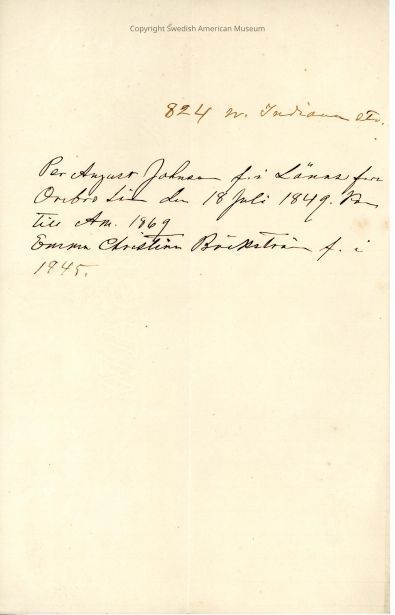 Copyright Swedish American Museum
824 W. Indiana str.
Per August Johnson f. i Länns frs
Örebro Län den 18 Juli 1849.
till Am. 1869
Emma Christina Bäckström f. i
1845.